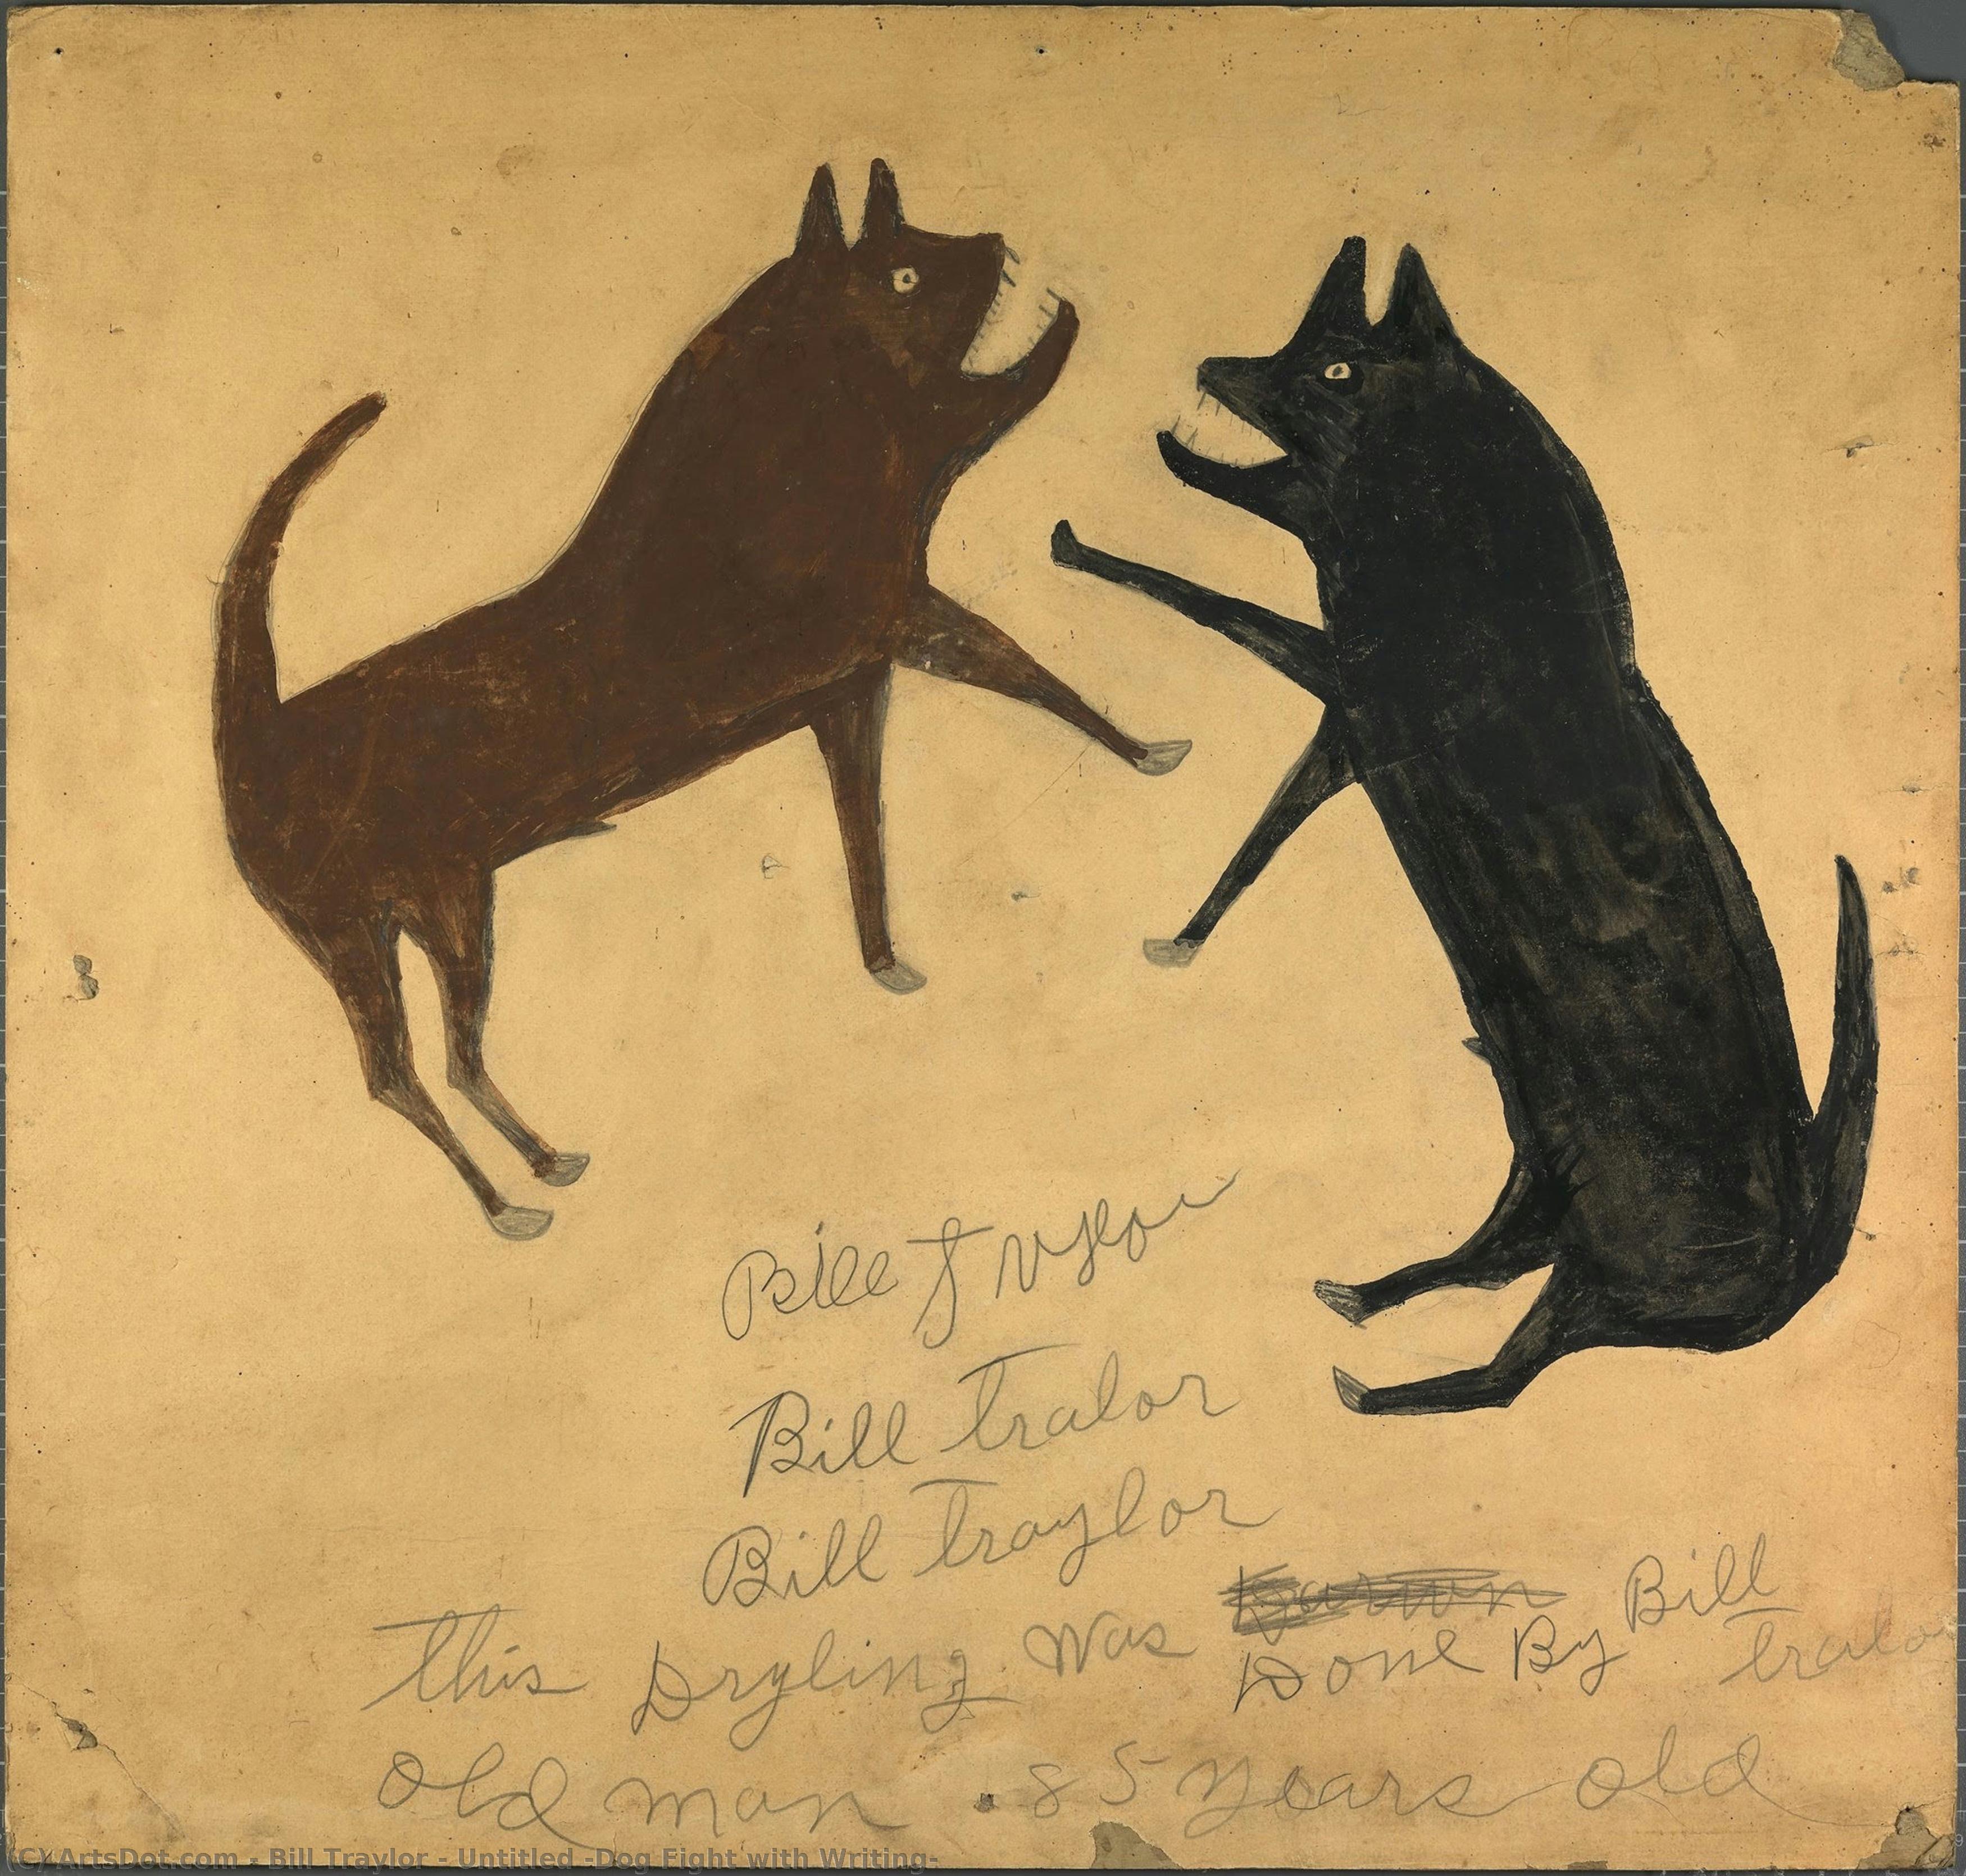 Bill Traylor
Bill Tralor
Bill Traylor
this Dryling was Done By Bill Tralor
old man . 85 years old
(C) ArtsDot.com - Bill Traylor - Untitled -Dog Fight with Writing-